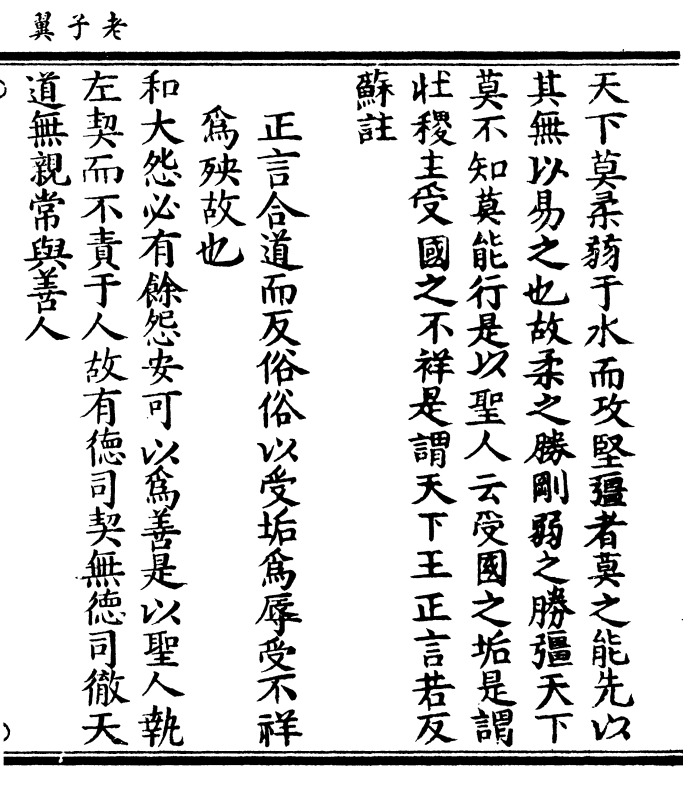 老子翼
天下莫柔弱于水而攻堅彊者莫之能先以
其無以易之也故柔之勝剛弱之勝彊天下
莫不知莫能行是以聖人云受國之垢是謂
社稷主受國之不祥是謂天下王正言若反
蘇註
正言合道而反俗俗以受垢為辱受不祥
為殃故也
和大怨必有餘怨安可以為善是以聖人執
左契而不責于人故有德司契無德司徹天
道無親常與善人